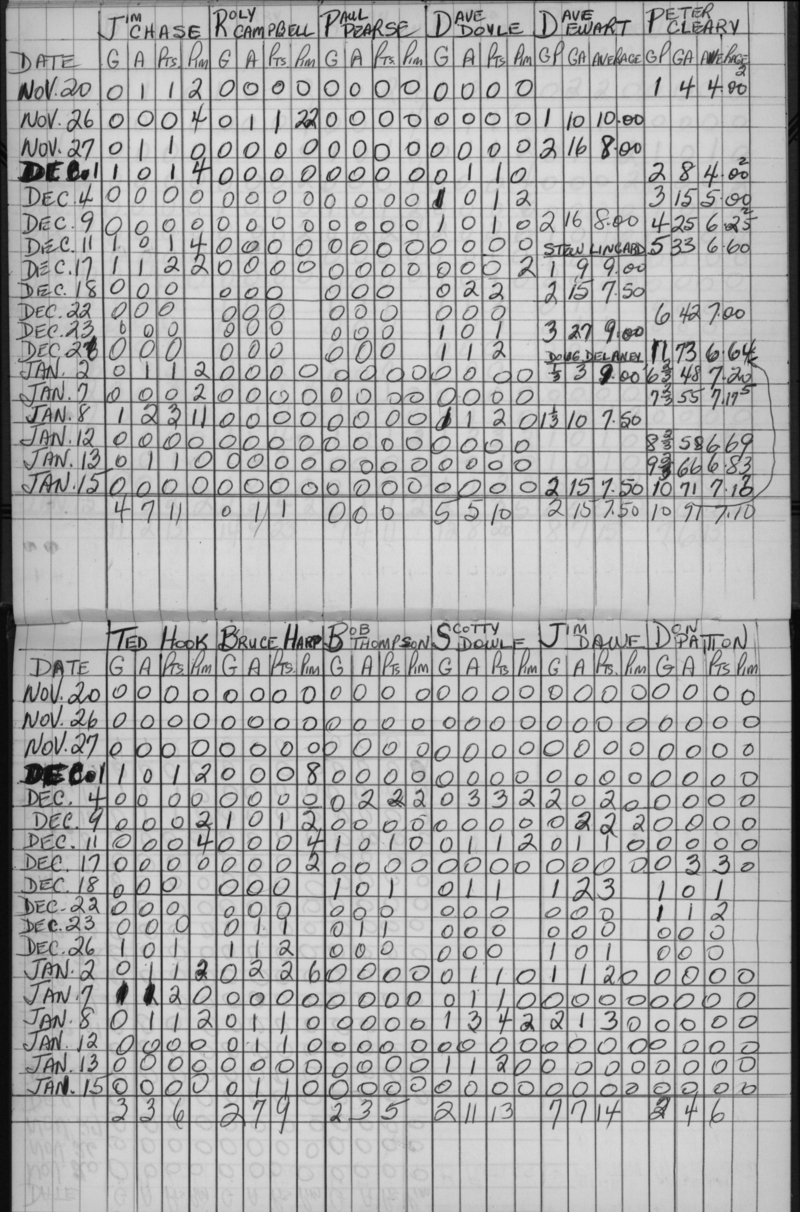 JIM CHASE ROLY CAMPBELL PAUL PEARSE DAVE DOYLE DAVE EWART PETER CLEARY
DATE G A Pts. Pim G A Pts Pim G A Pts. Pim G A Pts Pim GP GA AVERAGE GP GA AVERAGE
NOV. 20 0 1 1 2 0 0 0 0 0 0 0 0 0 0 0 0 1 4 4.00
NOV. 26 0 0 0 4 0 1 1 22 0 0 0 0 0 0 0 0 1 10 10.00
NOV. 27 0 1 1 0 0 0 0 0 0 0 0 0 0 0 0 0 2 16 8.00
DEC. 1 1 0 1 4 0 0 0 0 0 0 0 0 0 1 1 0 2 8 4.00
DEC. 4 0 0 0 0 0 0 0 0 0 0 0 0 1 0 1 2 3 15 5.00
DEC. 9 0 0 0 0 0 0 0 0 0 0 0 0 1 0 1 0 2 16 8.00 4 25 6.25
DEC. 11 1 0 1 4 0 0 0 0 0 0 0 0 0 0 0 0 STEW LINGARD 5 33 6.60
DEC. 17 1 1 2 2 0 0 0 0 0 0 0 0 0 0 0 2 1 9 9.00
DEC. 18 0 0 0 0 0 0 0 0 0 0 2 2 2 15 7.50
DEC. 22 0 0 0 0 0 0 0 0 0 0 0 0 6 42 7.00
DEC. 23 0 0 0 0 0 0 0 0 0 1 0 1 3 27 9.00
DEC. 26 0 0 0 0 0 0 0 0 0 1 1 2 DOUG DELANEY 11 73 6.64
JAN. 2 0 1 1 2 0 0 0 0 0 0 0 0 0 0 0 0 1/3 3 9.00 6 2/3 48 7.20
JAN. 7 0 0 0 2 0 0 0 0 0 0 0 0 0 0 0 0 7 2/3 55 7.17
JAN. 8 1 2 3 11 0 0 0 0 0 0 0 0 1 1 2 0 1 1/3 10 7.50
JAN. 12 0 0 0 0 0 0 0 0 0 0 0 0 0 0 0 0 8 2/3 58 6.69
JAN. 13 0 1 1 0 0 0 0 0 0 0 0 0 0 0 0 0 9 2/3 66 6.83
JAN. 15 0 0 0 0 0 0 0 0 0 0 0 0 0 0 0 0 2 15 7.50 10 71 7.10
4 7 11 0 1 1 0 0 0 5 5 10 2 15 7.50 10 71 7.10
TED HOOK BRUCE HARP BOB THOMPSON SCOTTY DOWLE JIM DAWE DON PATTON
DATE G A Pts Pim G A Pts. Pim G A Pts Pim G A Pts. Pim G A Pts. Pim G A Pts Pim
NOV. 20 0 0 0 0 0 0 0 0 0 0 0 0 0 0 0 0 0 0 0 0 0 0 0 0
NOV. 26 0 0 0 0 0 0 0 0 0 0 0 0 0 0 0 0 0 0 0 0 0 0 0 0
NOV. 27 0 0 0 0 0 0 0 0 0 0 0 0 0 0 0 0 0 0 0 0 0 0 0 0
DEC. 1 1 0 1 2 0 0 0 8 0 0 0 0 0 0 0 0 0 0 0 0 0 0 0 0
DEC. 4 0 0 0 0 0 0 0 0 0 2 2 2 0 3 3 2 2 0 2 0 0 0 0 0
DEC. 9 0 0 0 2 1 0 1 2 0 0 0 0 0 0 0 0 0 2 2 2 0 0 0 0
DEC. 11 0 0 0 4 0 0 0 4 1 0 1 0 0 1 1 2 0 1 1 0 0 0 0 0
DEC. 17 0 0 0 0 0 0 0 2 0 0 0 0 0 0 0 0 0 0 0 0 0 3 3 0
DEC. 18 0 0 0 0 0 0 1 0 1 0 1 1 1 2 3 1 0 1
DEC. 22 0 0 0 0 0 0 0 0 0 0 0 0 0 0 0 1 1 2
DEC. 23 0 0 0 0 1 1 0 1 1 0 0 0 0 0 0 0 0 0
DEC. 26 1 0 1 1 1 2 0 0 0 0 0 0 1 0 1 0 0 0
JAN. 2 0 1 1 2 0 2 2 6 0 0 0 0 0 1 1 0 1 1 2 0 0 0 0 0
JAN. 7 1 1 2 0 0 0 0 0 0 0 0 0 0 1 1 0 0 0 0 0 0 0 0 0
JAN. 8 0 1 1 2 0 1 1 0 0 0 0 0 1 3 4 2 2 1 3 0 0 0 0 0
JAN. 12 0 0 0 0 0 1 1 0 0 0 0 0 0 0 0 0 0 0 0 0 0 0 0 0
JAN. 13 0 0 0 0 0 0 0 0 0 0 0 0 1 1 2 0 0 0 0 0 0 0 0 0
JAN. 15 0 0 0 0 0 1 1 0 0 0 0 0 0 0 0 0 0 0 0 0 0 0 0 0
3 3 6 2 7 9 2 3 5 2 11 13 7 7 14 2 4 6